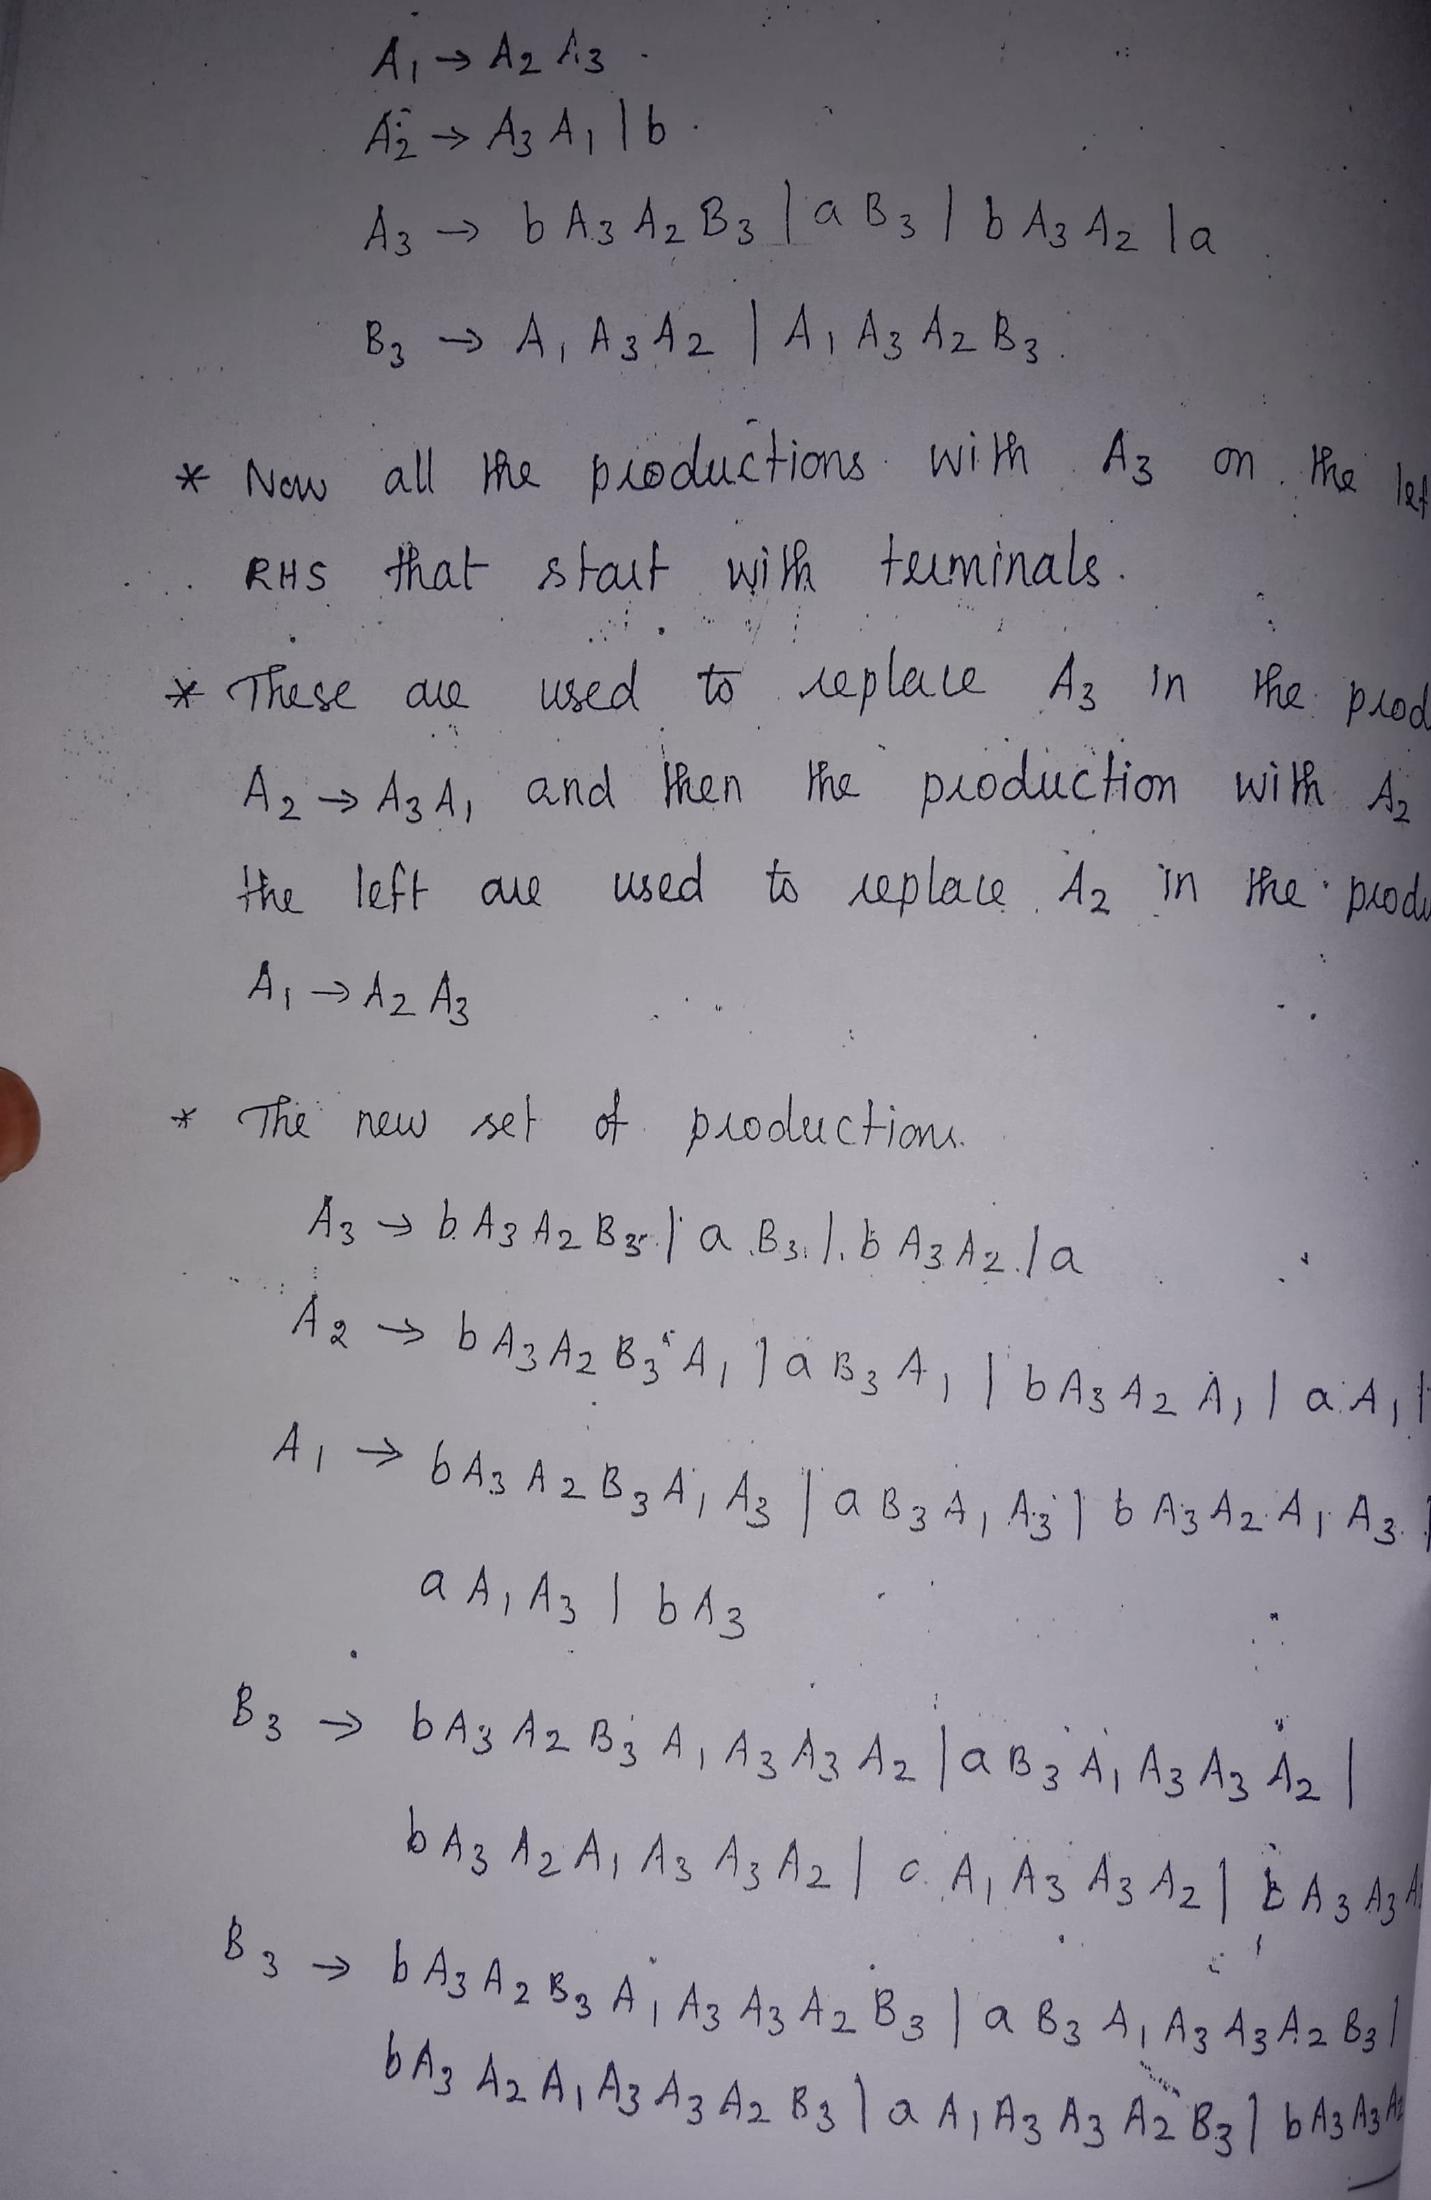 A₁ → A₂ A₃
A₂ → A₃ A₁ | b
A₃ → b A₃ A₂ B₃ | a B₃ | b A₃ A₂ | a
B₃ → A₁ A₃ A₂ | A₁ A₃ A₂ B₃
* Now all the productions with A₃ on the lef
RHS that start with terminals.
* These are used to replace A₃ in the prod
A₂ → A₃ A₁ and then the production with A₂
the left are used to replace A₂ in the produ
A₁ → A₂ A₃
* The new set of productions.
A₃ → b A₃ A₂ B₃ | a B₃ | b A₃ A₂ | a
A₂ → b A₃ A₂ B₃ A₁ | a B₃ A₁ | b A₃ A₂ A₁ | a A₁ |
A₁ → b A₃ A₂ B₃ A₁ A₃ | a B₃ A₁ A₃ | b A₃ A₂ A₁ A₃ |
a A₁ A₃ | b A₃
B₃ → b A₃ A₂ B₃ A₁ A₃ A₃ A₂ | a B₃ A₁ A₃ A₃ A₂ |
b A₃ A₂ A₁ A₃ A₃ A₂ | a A₁ A₃ A₃ A₂ | b A₃ A₃ A
B₃ → b A₃ A₂ B₃ A₁ A₃ A₃ A₂ B₃ | a B₃ A₁ A₃ A₃ A₂ B₃ |
b A₃ A₂ A₁ A₃ A₃ A₂ B₃ | a A₁ A₃ A₃ A₂ B₃ | b A₃ A₃ A₂